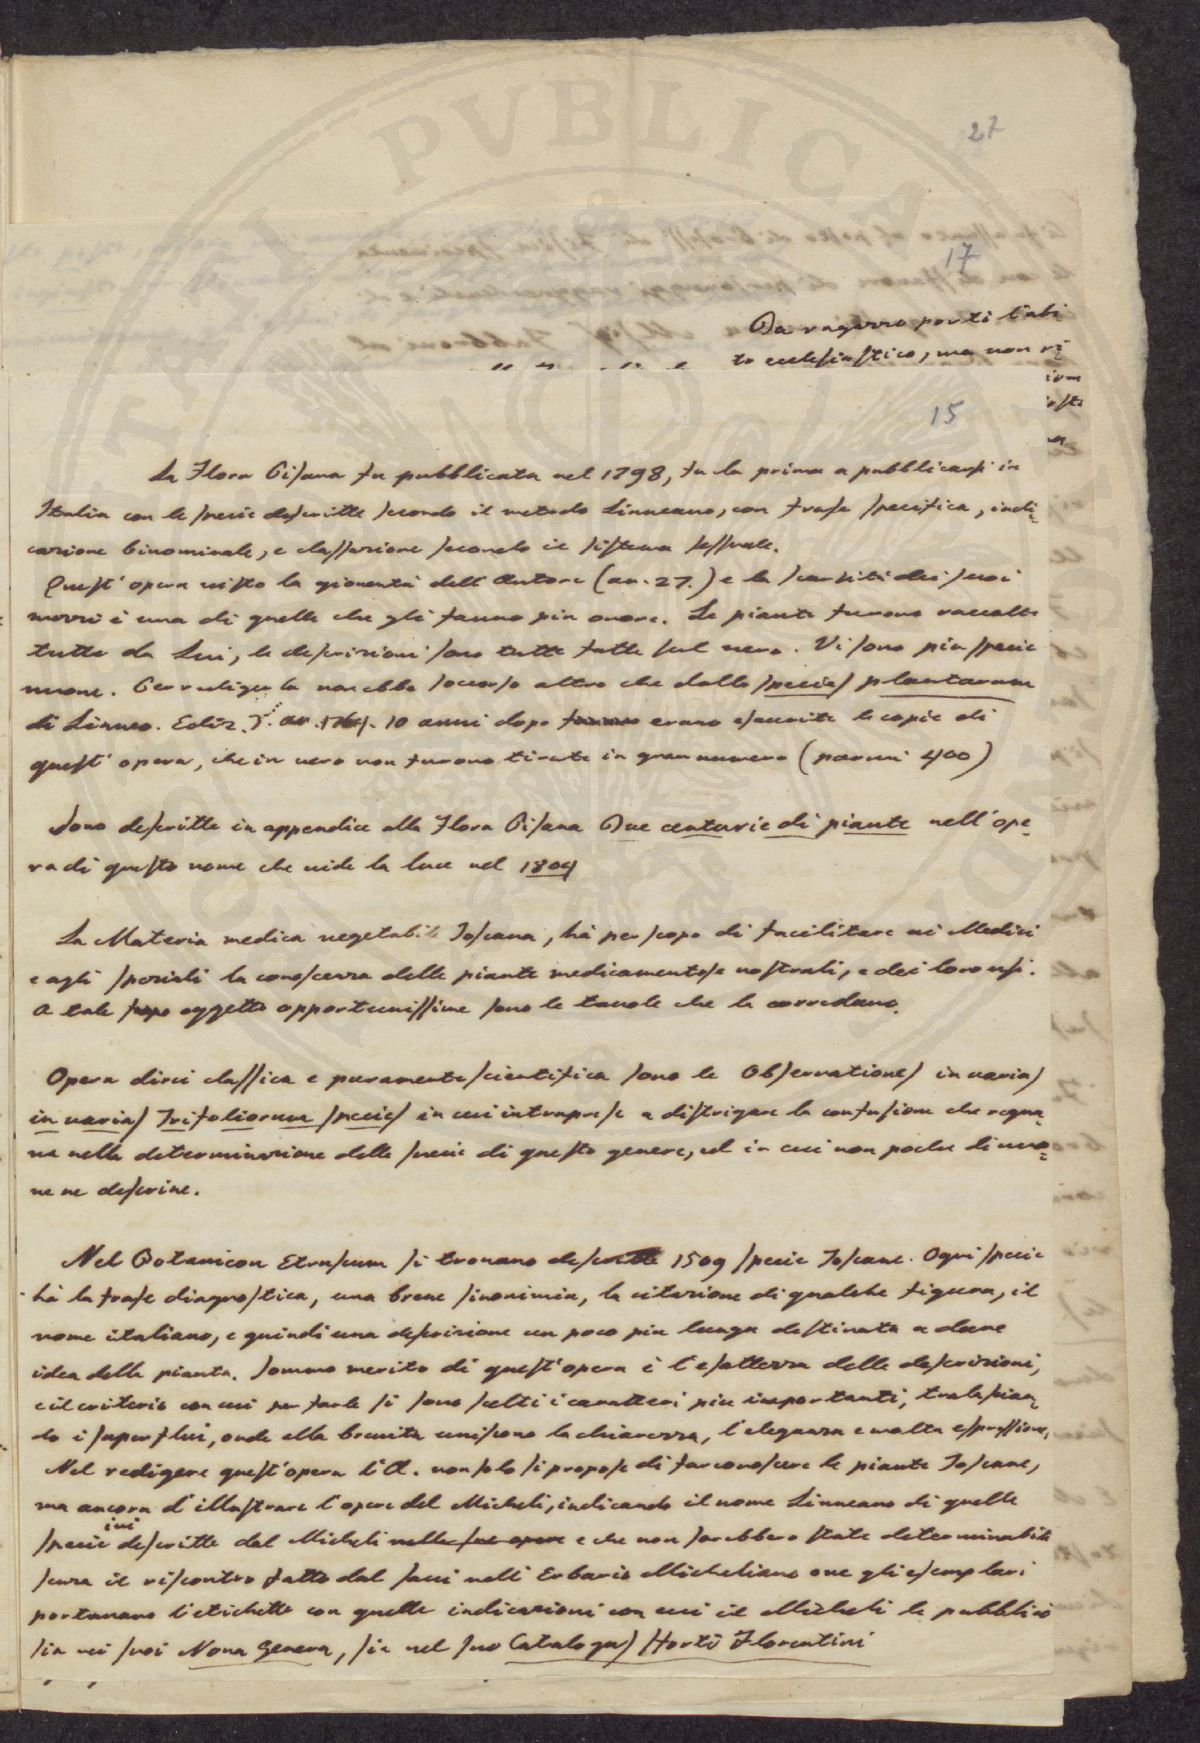 27
17
Da ragazzo portò l'abi
to ecclesiastico, ma non ri
15
La Flora Pisana fu pubblicata nel 1798, fu la prima a pubblicarsi in
Italia con le specie descritte secondo il metodo Linneano, con frase specifica, indi=
cazione binominale, e classazione secondo il sistema sessuale.
Quest'opera visto la gioventù dell'Autore (an. 27.) e la scarsità dei suoi
mezzi è una di quelle che gli fanno più onore. Le piante furono raccolte
tutte da Lui, le descrizioni sono tutte fatte sul vero. Vi sono più specie
nuove. Per redigerla non ebbe soccorso altro che dalle species plantarum
di Linneo. Ediz. 3. an. 1764. 10 anni dopo furono erano esaurite le copie di
quest'opera, che in vero non furono tirate in gran numero (parmi 400)
Sono descritte in appendice alla Flora Pisana Due centurie di piante nell'ope=
ra di questo nome che vide la luce nel 1804
La Materia medica vegetabile Toscana, hà per scopo di facilitare ai Medici
e agli speziali la conoscenza delle piante medicamentose nostrali, e dei loro usi.
A tale scopo oggetto opportunissime sono le tavole che la corredano.
Opera direi classica e puramente scientifica sono le Observationes in varias
in varias Trifoliorum species in cui intraprese a distrigare la confusione che regna=
va nella determinazione delle specie di questo genere, ed in cui non poche di nuo=
ve ne descrive.
Nel Botanicon Etruscum si trovano descritte 1509 specie Toscane. Ogni specie
hà la frase diagnostica, una breve sinonimia, la citazione di qualche figura, il
nome italiano, e quindi una descrizione un poco più lunga destinata a dare
idea della pianta. Sommo merito di quest'opera è l'esattezza delle descrizioni,
e il criterio con cui per farle si sono scelti i caratteri più importanti, tralascian
do i superflui, onde alla brevità uniscono la chiarezza, l'eleganza e molta espressione,
Nel redigere quest'opera l'A. non solo si propose di far conoscere le piante Toscane,
ma ancora d'illustrare l'opere del Micheli, indicando il nome Linneano di quelle
specie ivi descritte dal Micheli nelle sue opere e che non sarebbero state determinabili
senza il riscontro fatto dal Savi nell'Erbario Micheliano ove gli esemplari
portavano l'etichette con quelle indicazioni con cui il Micheli le pubblicò
sia nei suoi Nova Genera, sia nel suo Catalogus Horti Florentini